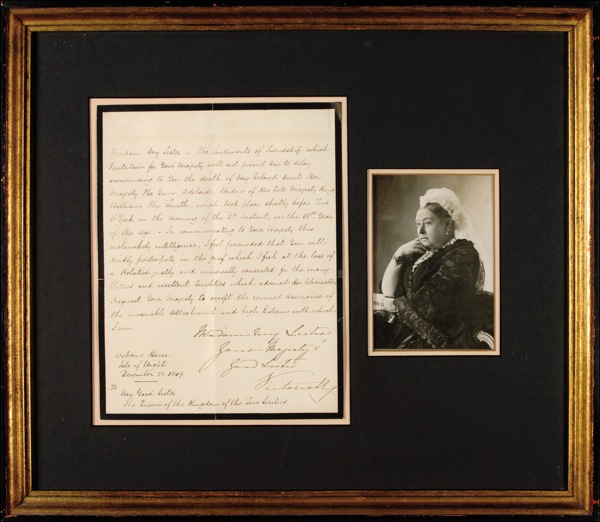 Madam My Sister – The Sentiments of Friendship which
I entertain for Your Majesty will not permit me to delay
announcing to You the death of My beloved Aunt Her
Majesty The Queen Adelaide, Widow of His late Majesty King
William The Fourth, which took place shortly before Two
O'Clock on the morning of the 2nd Instant, in the 58th Year
of Her Age. – In communicating to Your Majesty this
melancholy intelligence, I feel persuaded that You will
kindly participate in the grief which I feel at the loss of
a Relative justly and universally venerated for the many
Virtues and excellent qualities which adorned Her Character
I request Your Majesty to accept the renewed Assurance of
the invariable Attachment and high Esteem with which
I am
Madam My Sister
Your Majesty's
Good Sister
Victoria R
Osborne House
Isle of Wight
December 21. 1849.
To
My Good Sister
The Queen of the Kingdom of the Two Sicilies.